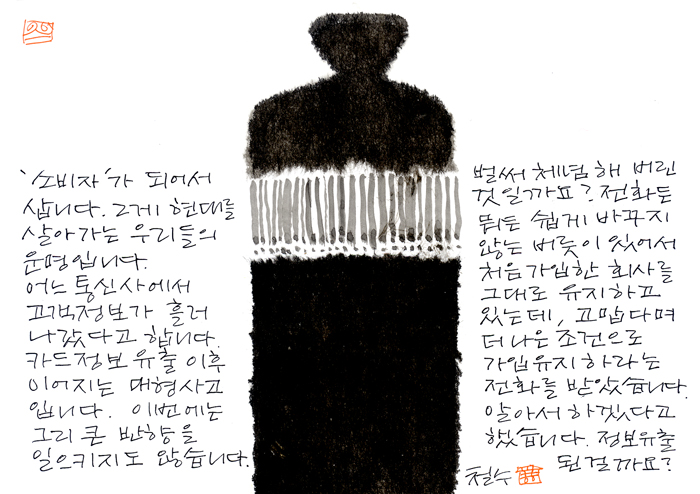 '소비자'가 되어서
삽니다. 그게 현대를
살아가는 우리들의
운명입니다.
어느 통신사에서
고객정보가 흘러
나갔다고 합니다.
카드정보유출 이후
이어지는 대형사고
입니다. 이번에는
그리 큰 반향을
일으키지도 않습니다.
벌써 체념해 버린
것일까요? 전화든
뭐든 쉽게 바꾸지
않는 버릇이 있어서
처음 가입한 회사를
그대로 유지하고
있는데, 고맙다며
더 나은 조건으로
가입유지하라는
전화를 받았습니다.
알아서 하겠다고
했습니다. 정보유출
된걸까요?
철수